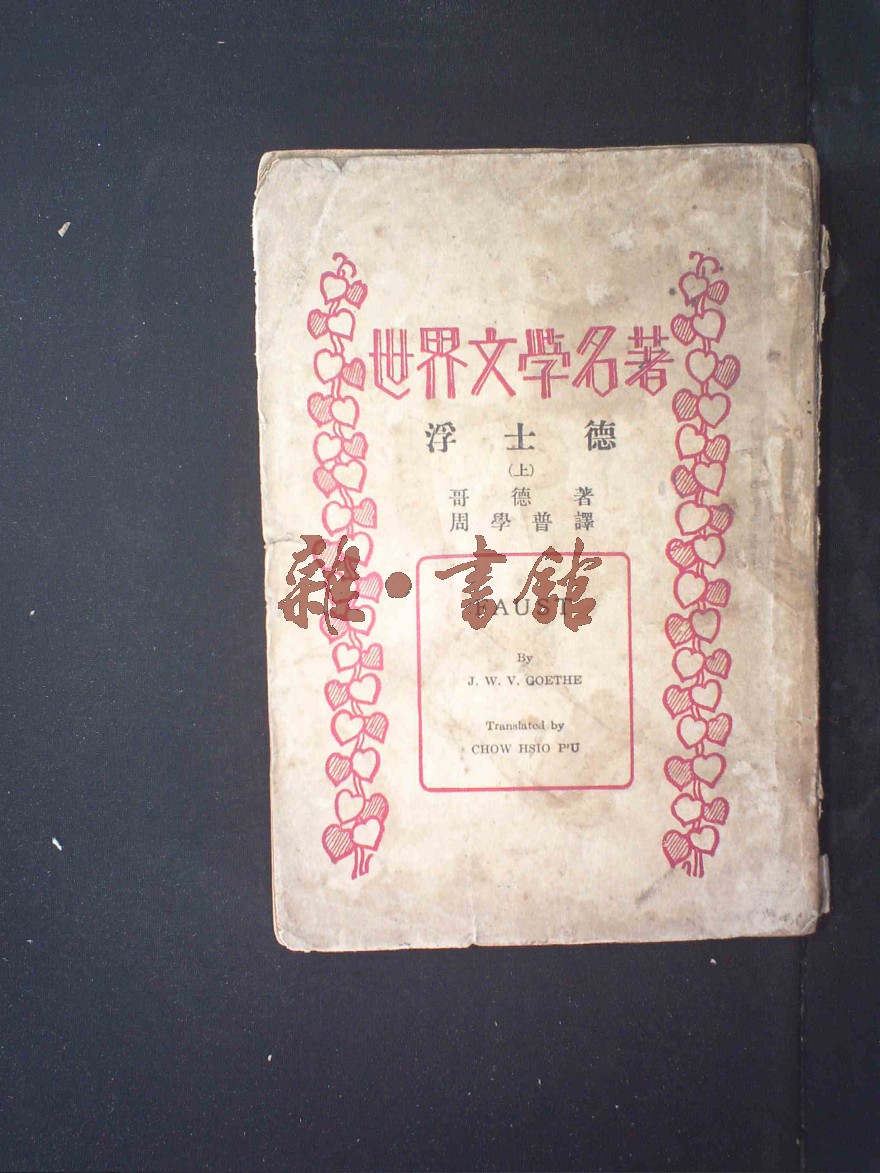 世界文學名著
浮士德
(上)
哥德著
周學普譯
雜·書館
FAUST
By
J. W. V. GOETHE
Translated by
CHOW HSIO P'U